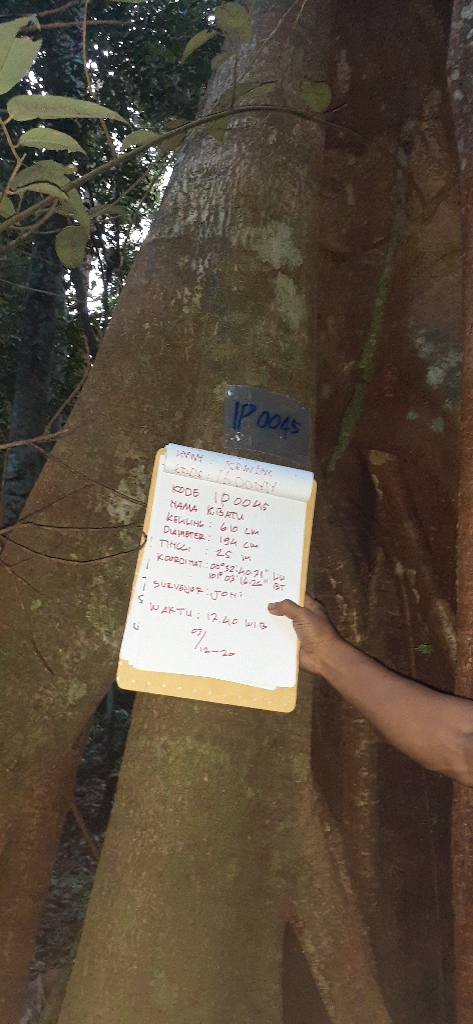 IP 0045
KODE IP 0045
NAMA KIBATU
KELILING : 610 CM
DIAMETER : 194 CM
TINGGI : 25 M
KOORDINAT : 00°32'40.71" LU
101°03'16.26" BT
SURVEYOR : JONI
WAKTU : 12.40 WIB
02/12-20